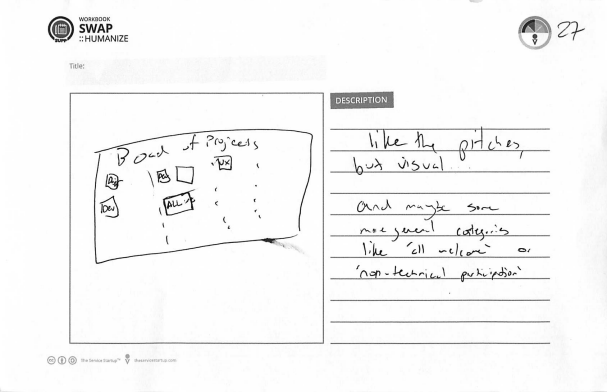 WORKBOOK
SWAP
:: HUMANIZE
27
Title:
Board of Projects
UX
Dev
ALL
DESCRIPTION
like the pitches,
but visual...
and maybe some
more general categories
like "all welcome" or
"non-technical participation"
The Service Startup™ theservicestartup.com